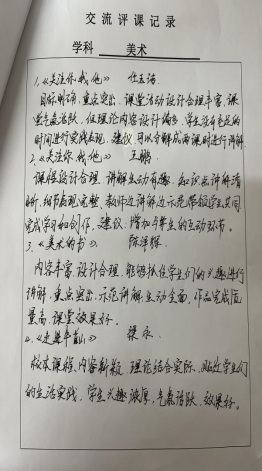 交流评课记录
学科 美术
1.《关注你、我、他》 
目标明确,重点突出,课堂活动设计合理丰富,课
堂气氛活跃,但理论内容设计偏多,学生没有充足的
时间进行实践表现,建议可以分解成两课时进行讲解.
2.《关注你、我、他》 王鹏
课程设计合理,讲解生动有趣,知识点讲解清
晰,细节表现完整,教师边讲解边示范带领学生共同
完成学习和创作,建议:增加与学生的互动环节.
3.《美术的书》. 陈洋槿
内容丰富,设计合理,能够抓住学生们的兴趣进行
讲解,重点突出,示范讲解生动全面,作品完成质
量高,课堂效果好.
4.《走进 山》 永
校本课程,内容新颖,理论结合实际,贴近学生们
的生活实践,学生兴趣浓厚,气氛活跃,效果好.